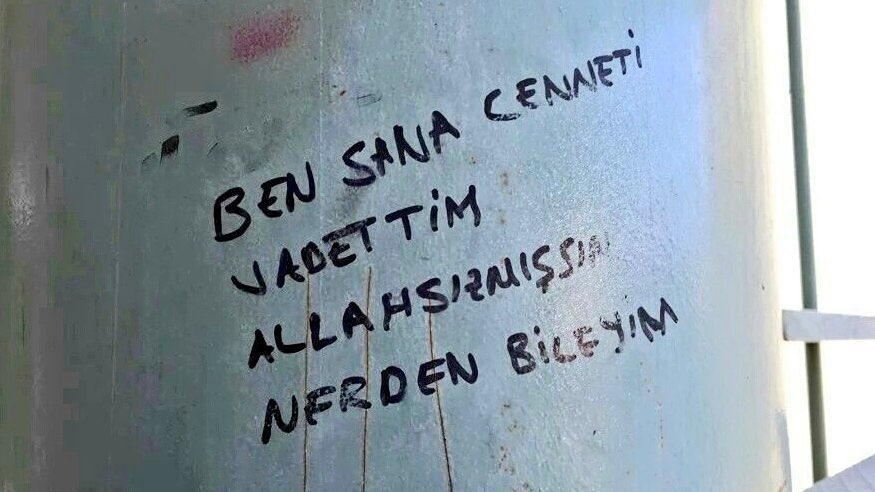 BEN SANA CENNETİ
VADETTİM
ALLAHSIZMIŞSIN
NERDEN BİLEYİM